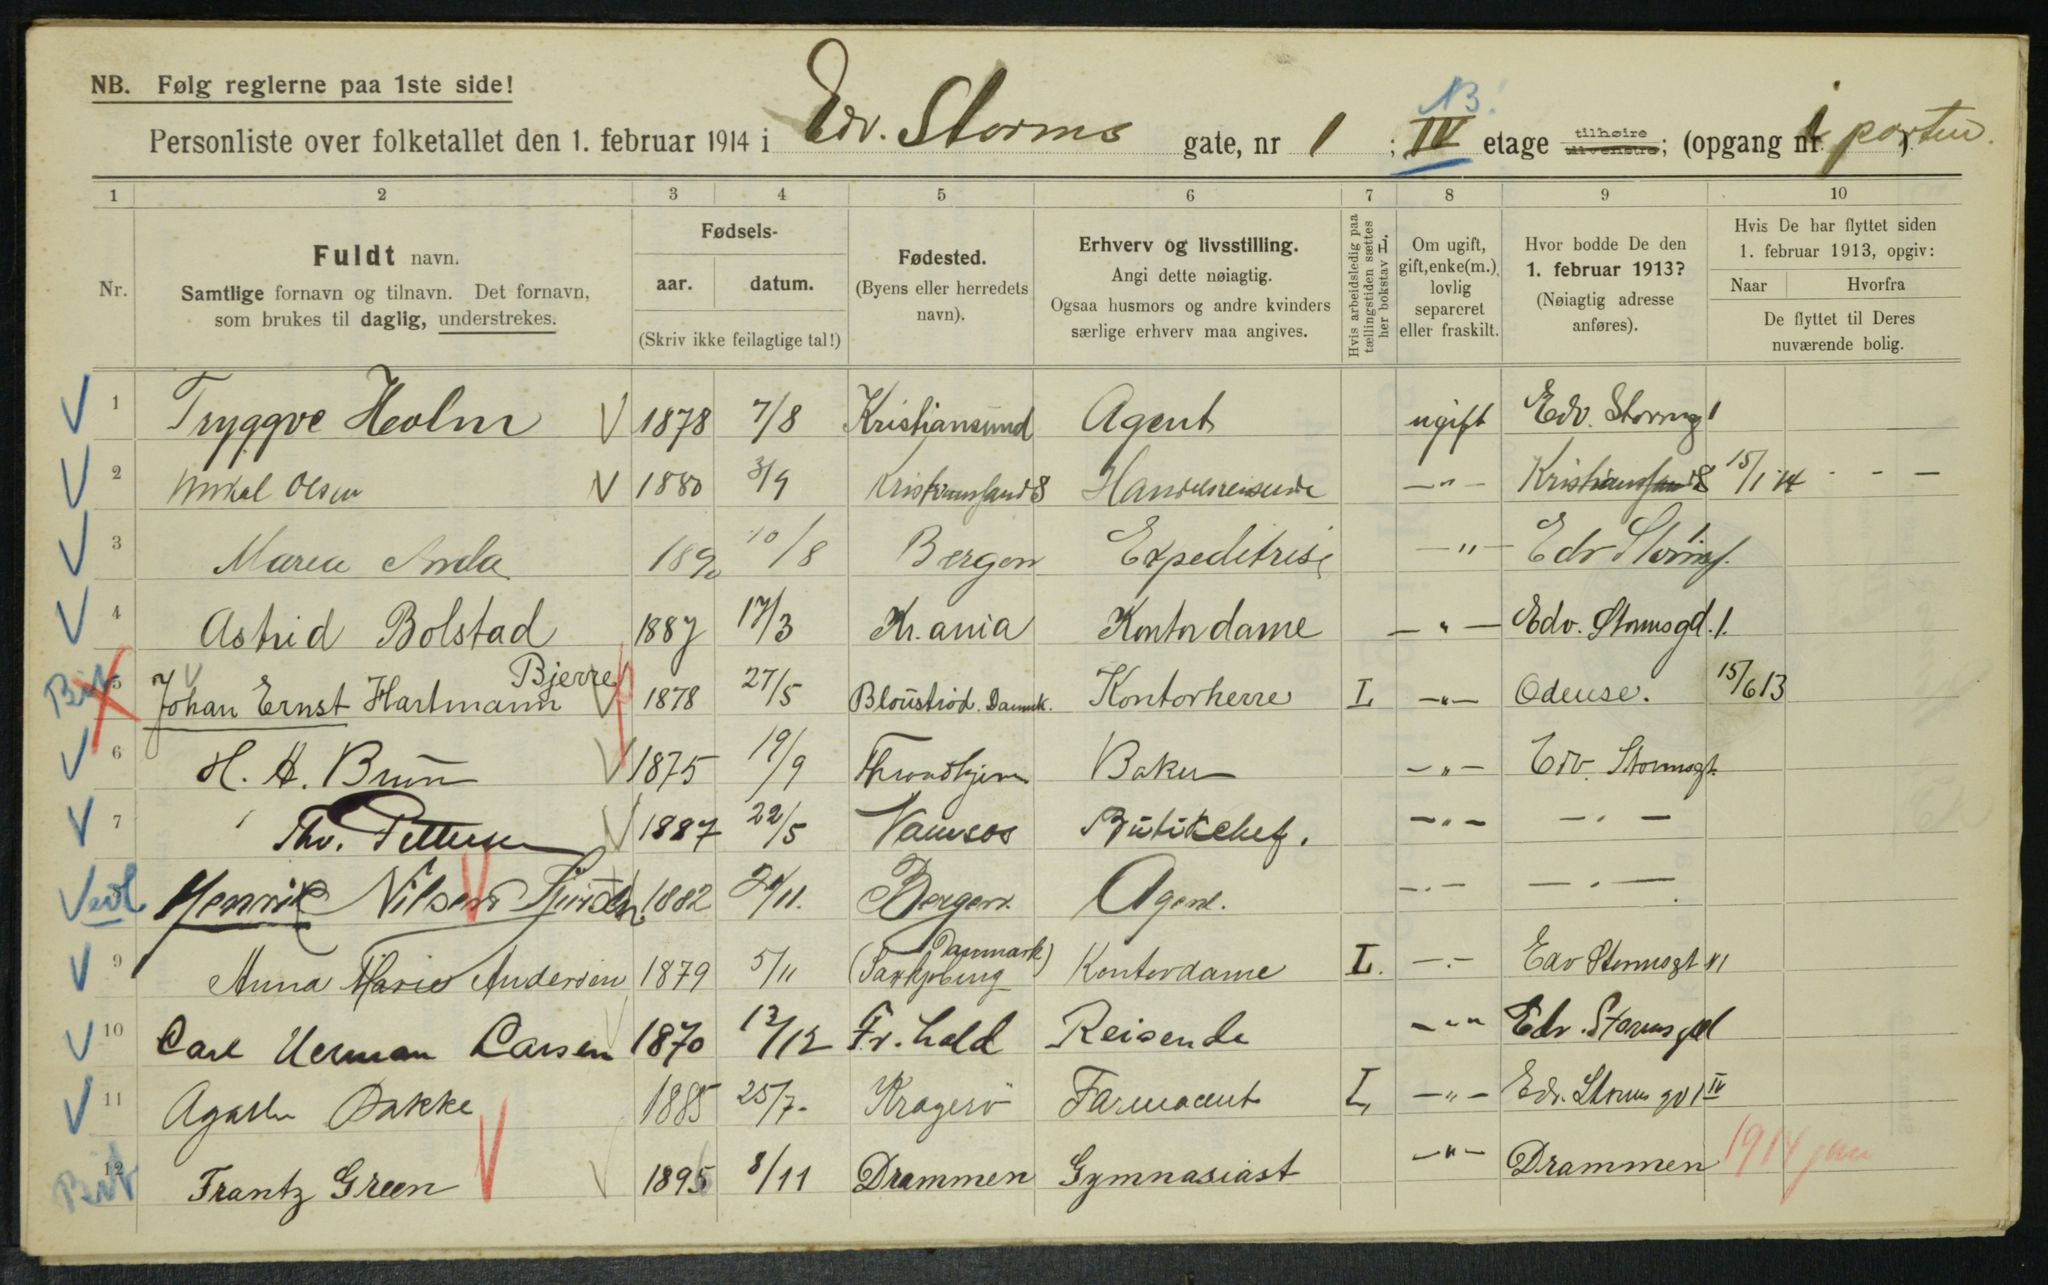 NB. Følg reglerne paa 1ste side!
NB.
Personliste over folketallet den 1. februar 1914 i Edv. Storms gate, nr 1 ; IV etage tilhøire tilvenstre; (opgang nr. i porten.)
1 2 3 4 5 6 7 8 9 10
Nr.
Fuldt navn.
Samtlige fornavn og tilnavn. Det fornavn,
som brukes til daglig, understrekes.
Fødsels-
aar. datum.
(Skriv ikke feilagtige tal!)
Fødested.
(Byens eller herredets
navn).
Erhverv og livsstilling.
Angi dette nøiagtig.
Ogsaa husmors og andre kvinders
særlige erhverv maa angives.
Hvis arbeidsledig paa
tællingstiden sættes
her bokstav L.
Om ugift,
gift, enke(m.),
lovlig
separeret
eller fraskilt.
Hvor bodde De den
1. februar 1913?
(Nøiagtig adresse
anføres).
Hvis De har flyttet siden
1. februar 1913, opgiv:
Naar Hvorfra
De flyttet til Deres
nuværende bolig.
1 Tryggve Holm 1878 7/8 Kristiansund Agent ugift Edv. Stormsg 1
2 Mikal Olsen 1880 3/9 Kristiansand S Handelsreisende —"— Kristiansand S 15/1 14 - - —
3 Marea Anda 1890 10/8 Bergen Expeditrise —"— Edv Stormsg. 1
4 Astrid Bolstad 1887 17/3 Kr.ania Kontordame —"— Edv. Stormsgd. 1.
5 Johan Ernst Hartmann Bjerre 1878 27/5 Bloustrød. Danmk. Kontorherre L —"— Odense. 15/6 13
6 H. A. Bruun 1875 19/9 Throndhjem Baker —"— Edv. Stormsgt.
7 Thv. Pettersen 1887 22/5 Namsos Butikchef. —"— —"—
Henrik Nilsen 1882 Bergen. Agent. —"— —"—
9 Anna Marie Andersen 1879 5/11 (Saxkjøbing Danmark) Kontordame L. —"— Edv Stormsgt 1
10 Carl Herman Larsen 1870 13/12 Fr.hald Reisende —"— Edv. Stormsgd 1
11 Agathe Bakke 1885 25/7. Kragerö Farmaceut L —"— Edv. Storms gd 1 IV
12 Frantz Green 1895 8/11 Drammen Gymnasiast —"— Drammen 1914 jan